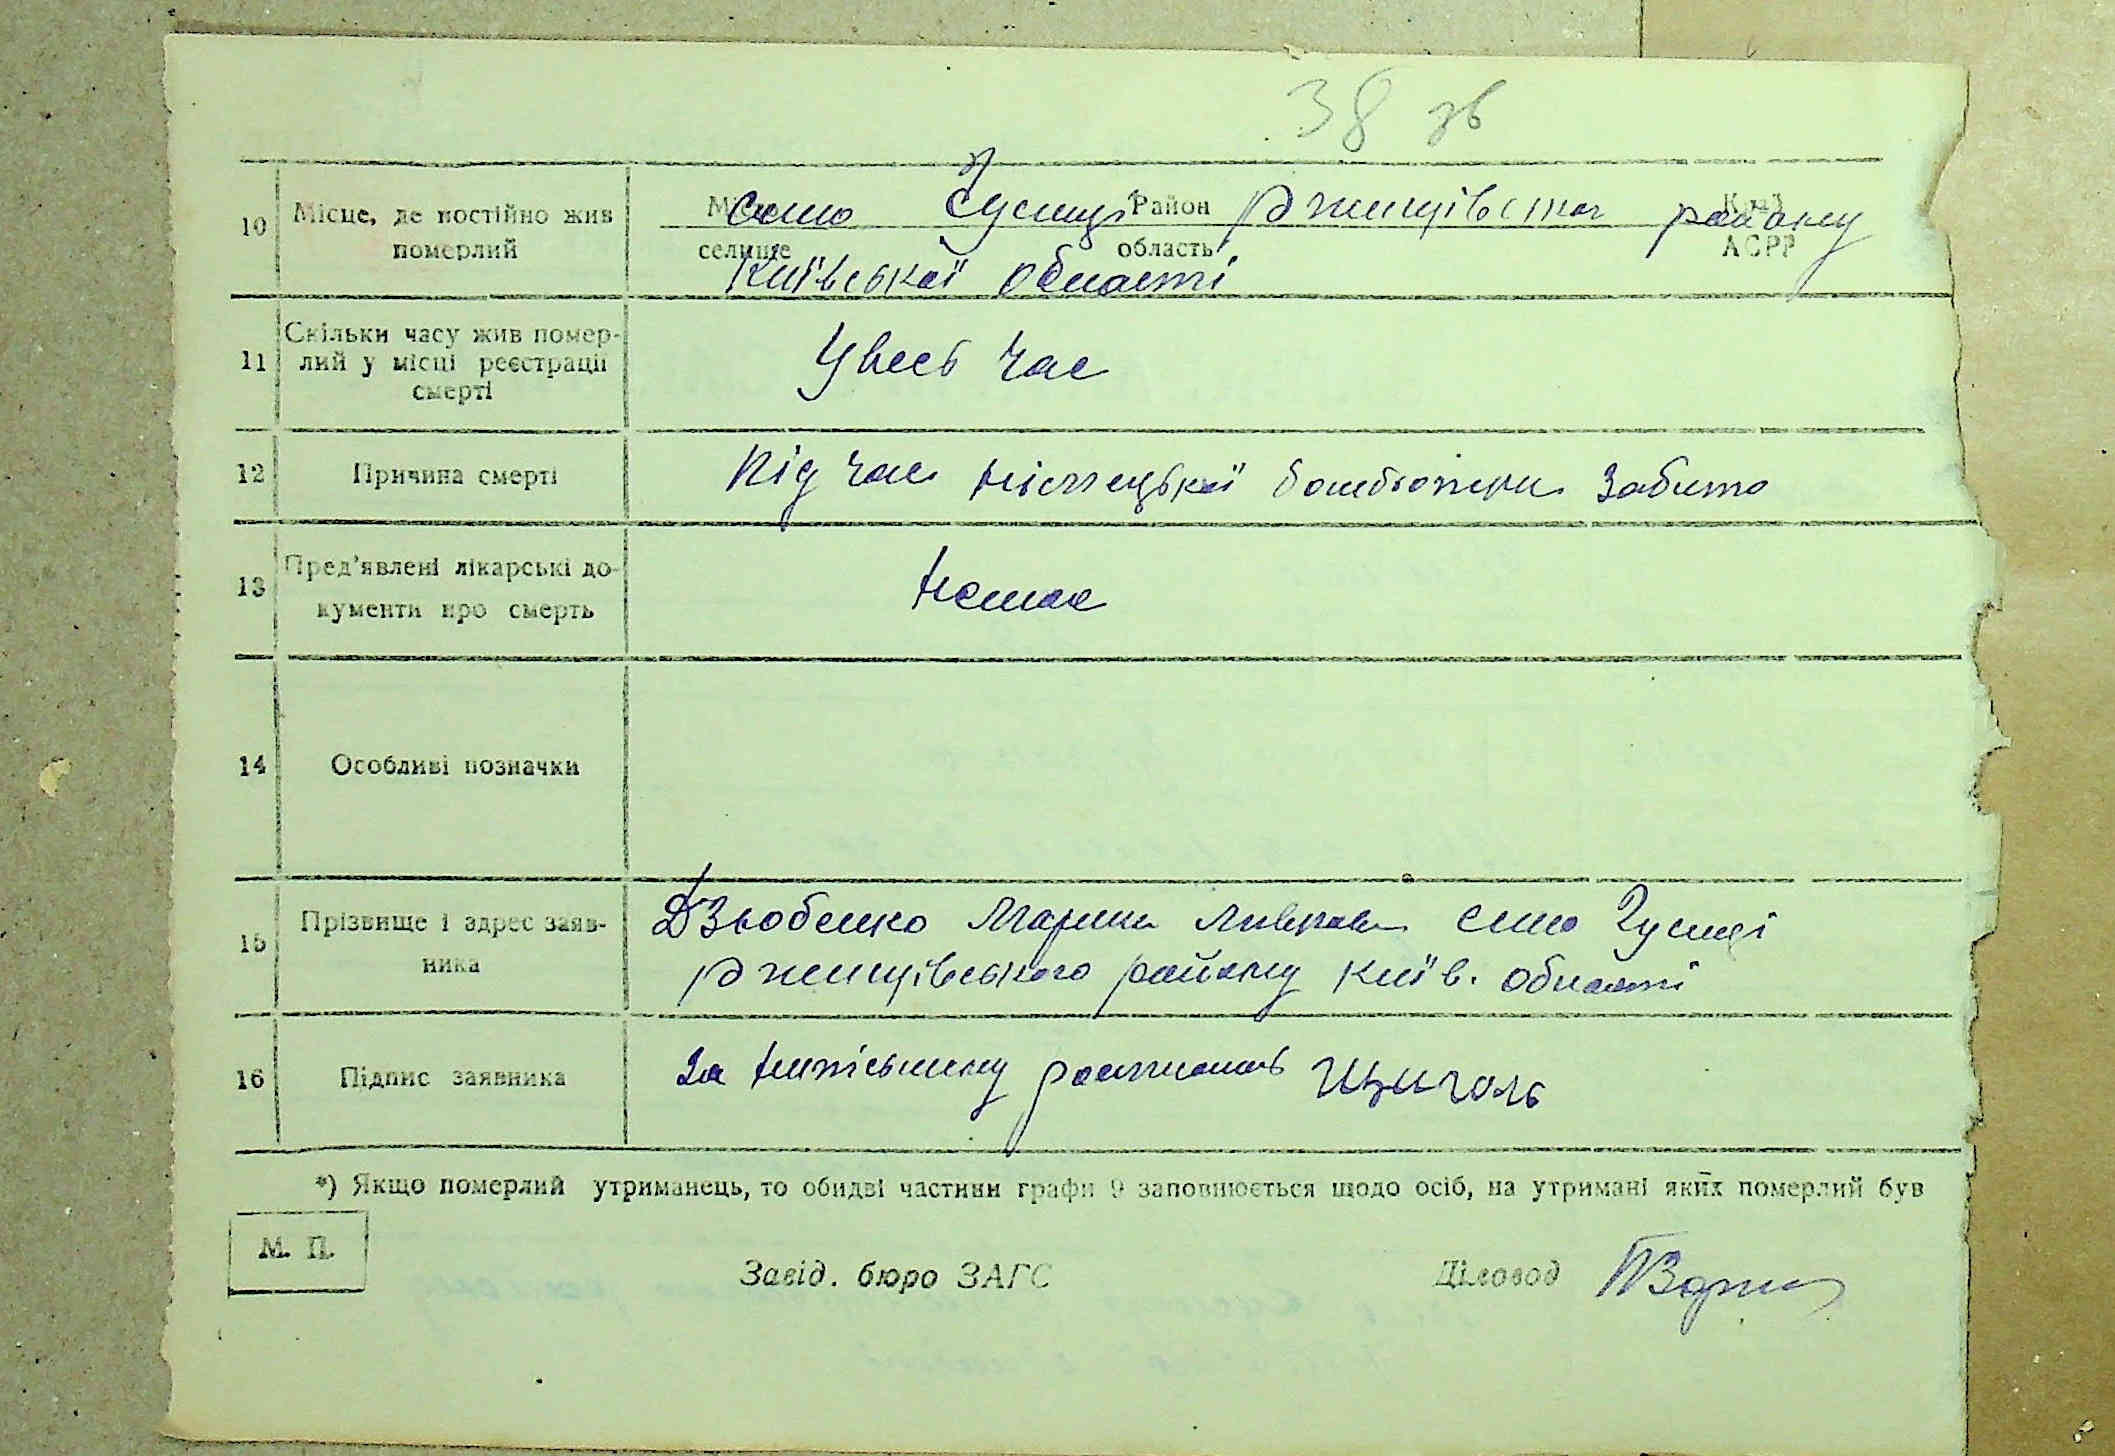 38 зв
10 Місце, де постійно жив померлий
Місто Район Край
село Гусинці Ржищівського району
селище область АСРР
Київської області
11 Скільки часу жив помер-
лий у місці реєстрації
смерті
Увесь час
12 Причина смерті
Під час німецької бомбьожки забито
13 Пред'явлені лікарські до-
кументи про смерть
Немає
14 Особливі позначки
15 Прізвище і адрес заяв-
ника
Дзюбенко Марина село Гусинці
Ржищівського району Київ. області
16 Підпис заявника
За
*) Якщо померлий утриманець, то обидві частини графи 9 заповнюється щодо осіб, на утримані яких померлий був
М. П.
Завід. бюро ЗАГС Діловод